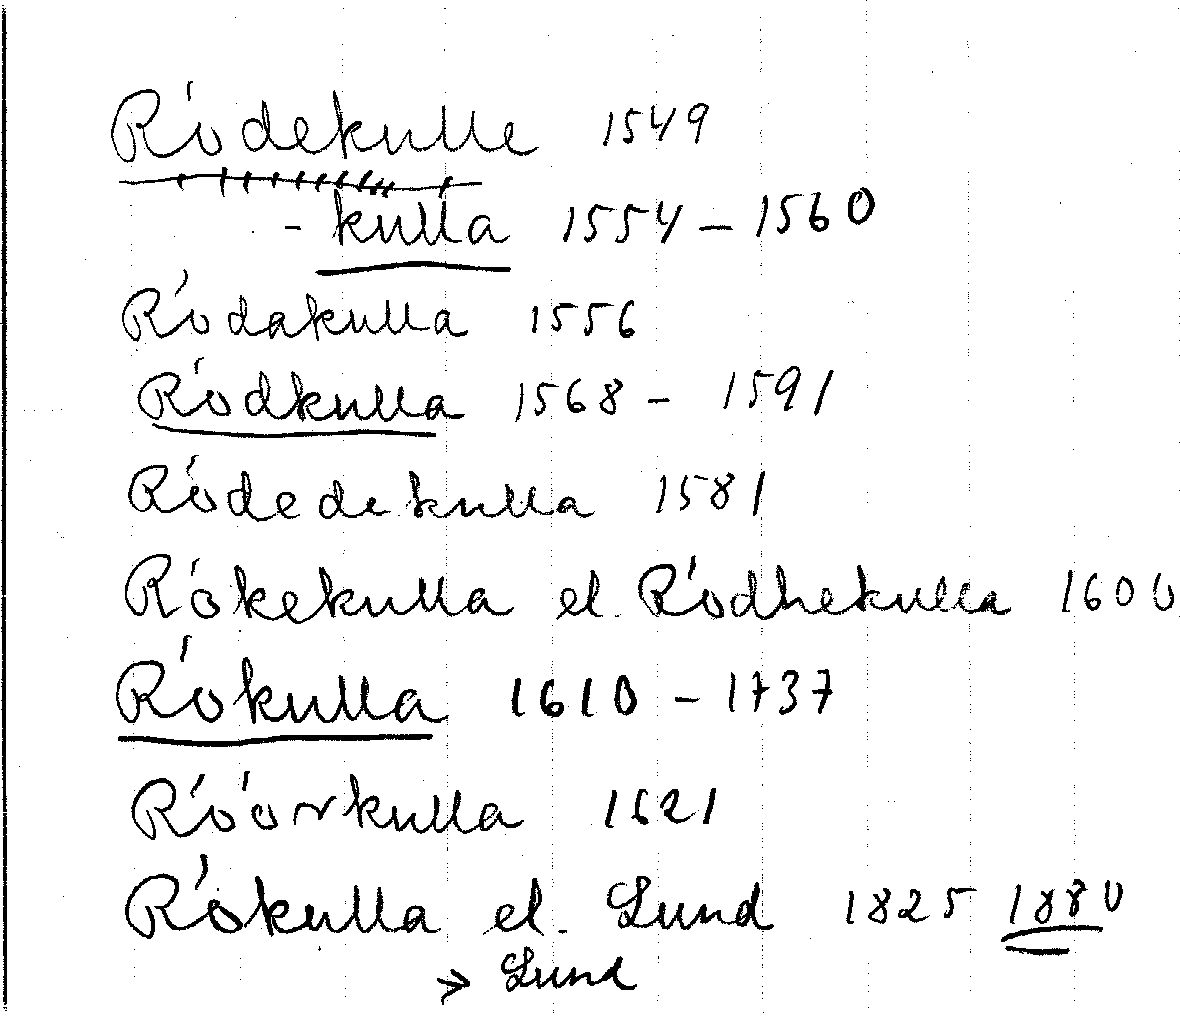 Rödekulle 1549
- kulla 1554 – 1560
Rödakulla 1556
Rödkulla 1568 – 1591
Rödedekulla 1581
Rökekulla el. Rödhekulla 1600
Rökulla 1610 – 1737
Röörkulla 1621
Rökulla el. Lund 1825 1880
→ Lund